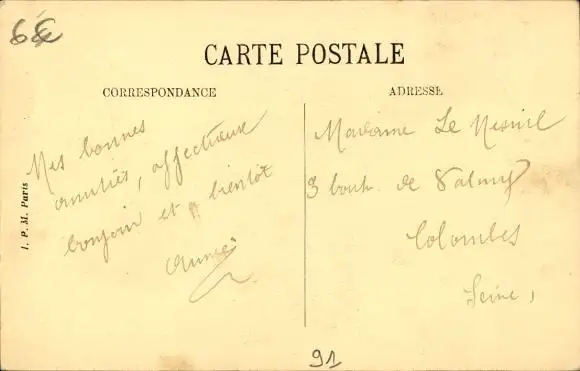 6€
CARTE POSTALE
CORRESPONDANCE
ADRESSE
Mes bonnes
amitiés, affectueux
bonjour et à bientôt
Aimée
Madame Le Mesnil
3 boul. de Valmy
Colombes
Seine,
I. P. M. Paris
91